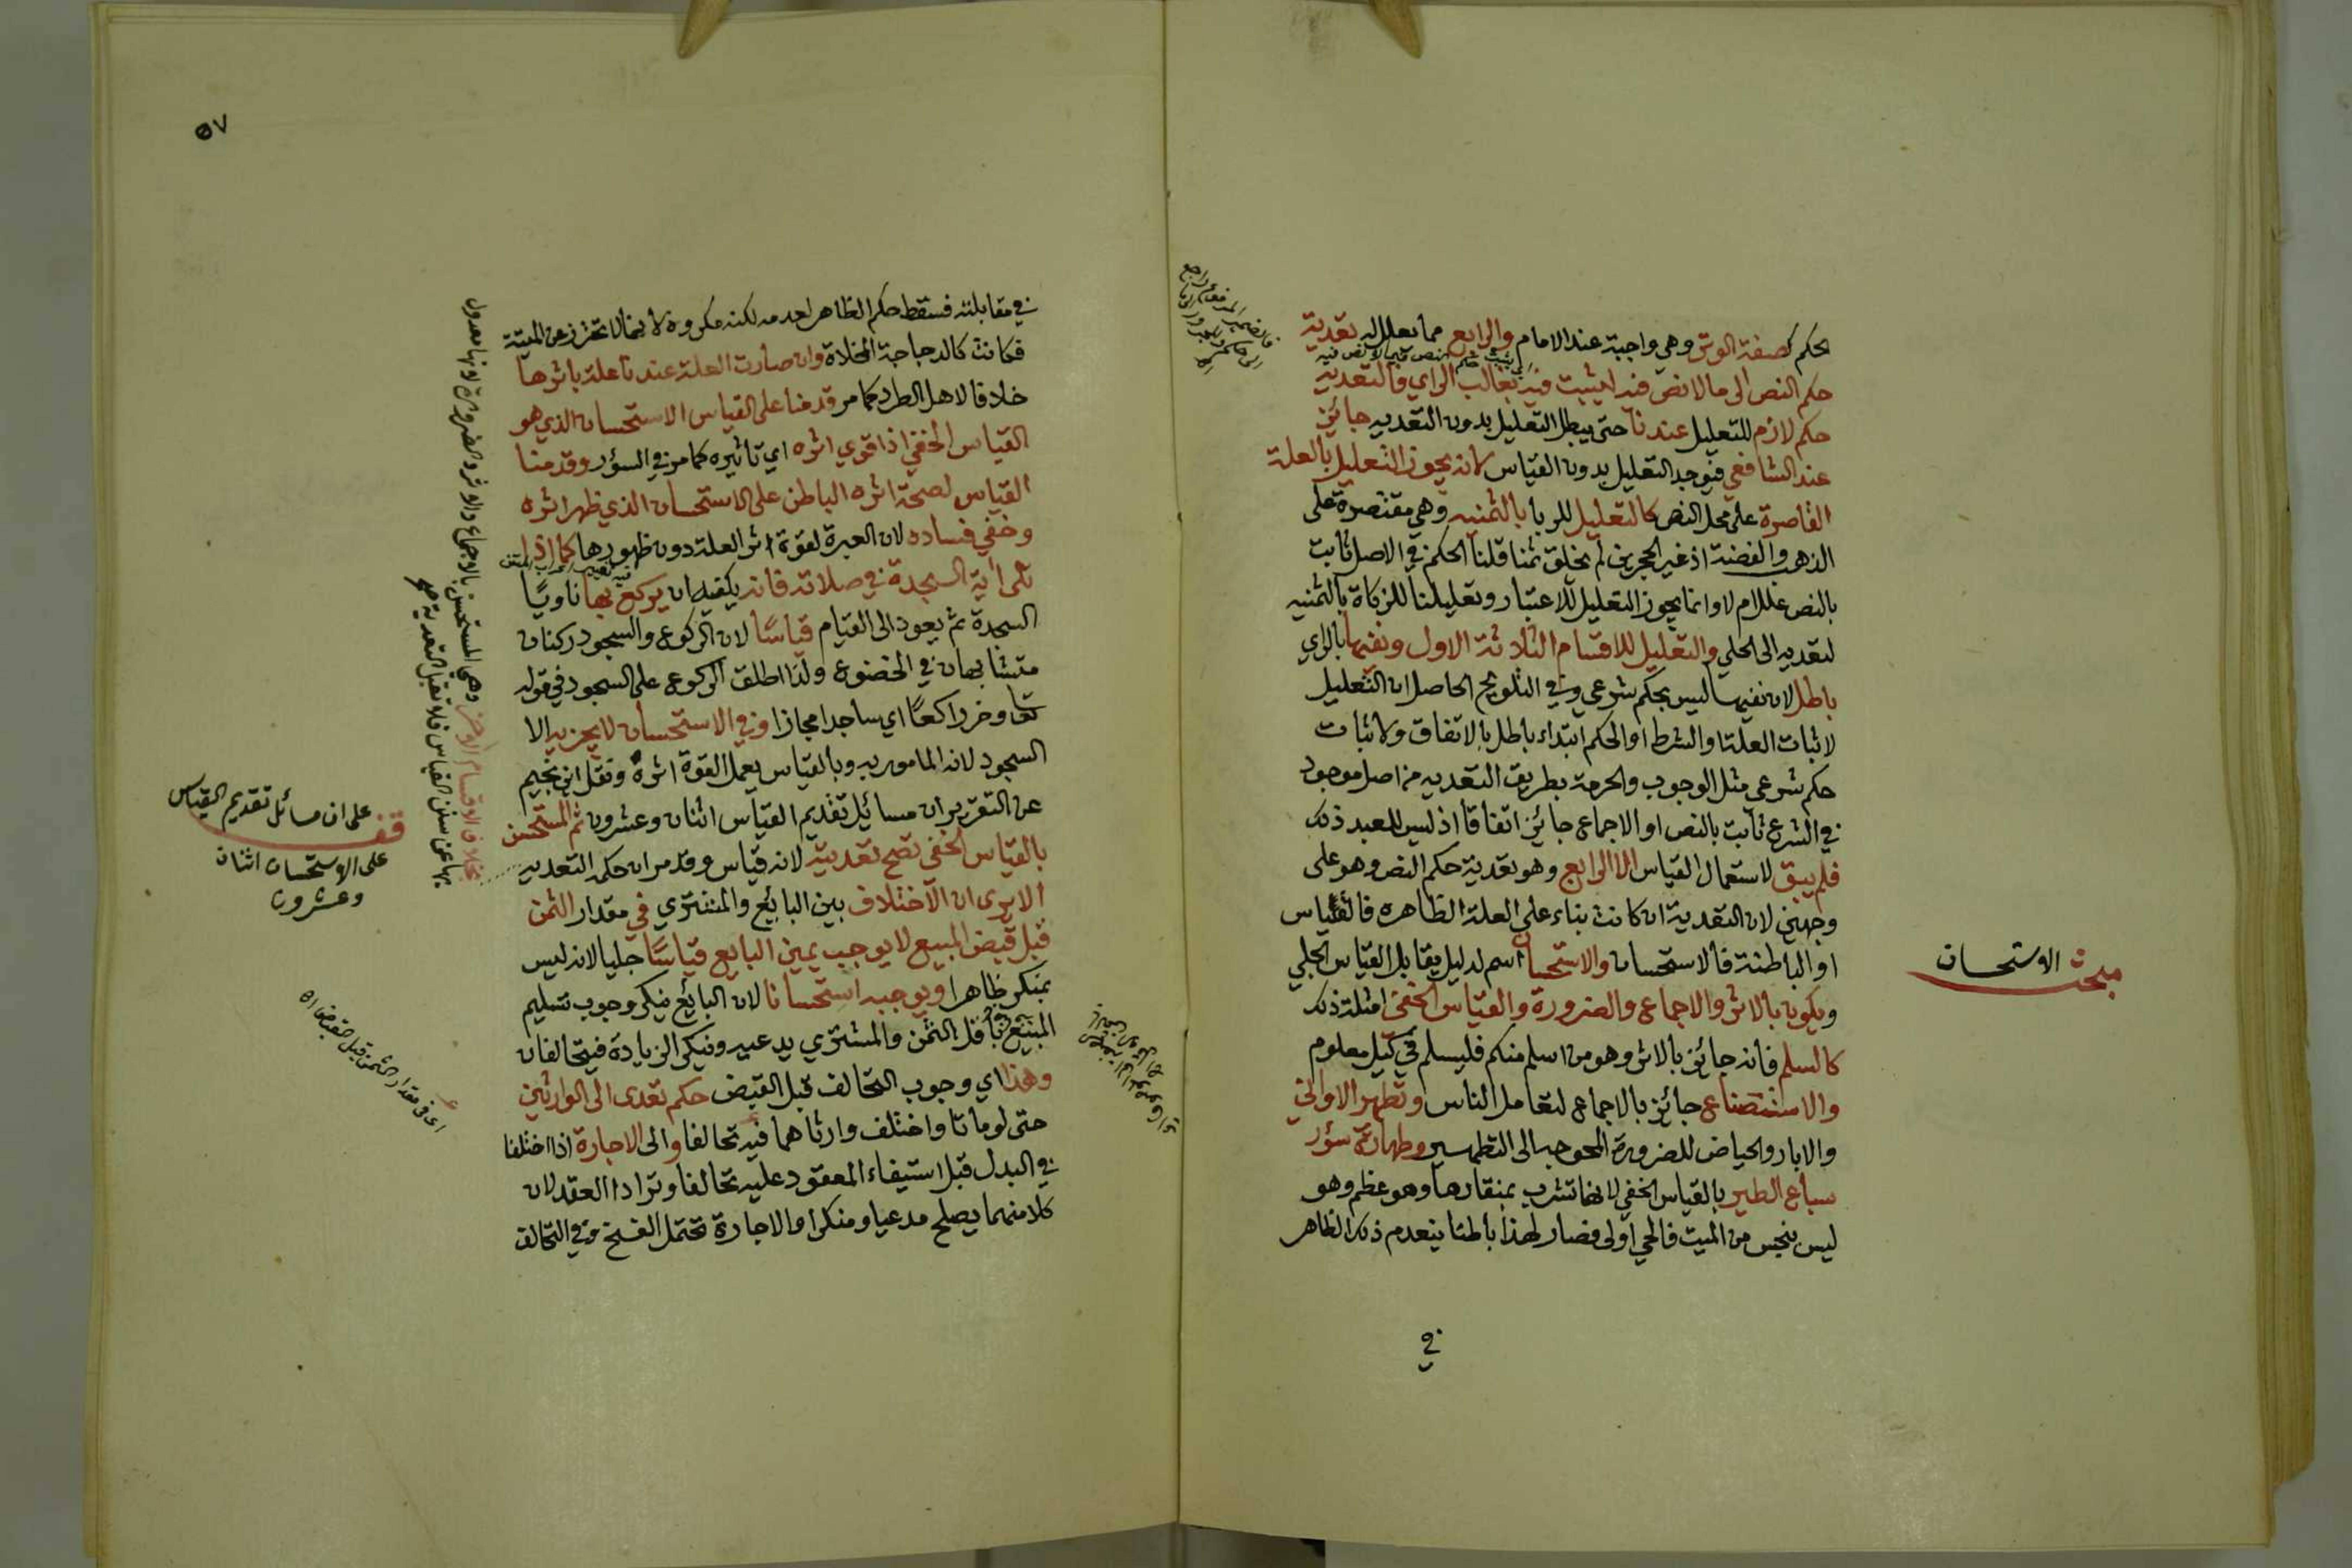 الحكم كصفة الوتر وهي واجبة عند الامام والرابع مما يعلل له تعدية
حكم النص الى ما لا نص فيه ليثبت فيه بغالب الراي فالتعدية
حكم لازم للتعليل عندنا حتى يبطل التعليل بدون التعدية جائز
عند الشافعي فيوجد التعليل بدون القياس لانه يجوز التعليل بالعلة
القاصرة على محل النص كالتعليل للربا بالثمنيه وهي مقتصرة على
الذهب والفضة اذ غير الحجرين لم يخلق ثمنا قلنا الحكم في الاصل ثابت
بالنص علل ام لا وانما يجوز التعليل للاعتبار وتعليلنا للزكاة بالثمنيه
لتعديه الى الحلي والتعليل للاقسام الثلاثة الاول ونفيها بالراي
باطل لان نفيها ليس بحكم شرعي وفي التلويح الحاصل ان التعليل
لاثبات العلة او الشرط او الحكم ابتداء باطل بالاتفاق ولاثبات
حكم شرعي مثل الوجوب والحرمة بطريق التعديه من اصل موجود
في الشرع ثابت بالنص او الاجماع جائز اتفاقا اذ ليس للعبد ذلك
فلم يبق لاستعمال القياس الا الرابع وهو تعدية حكم النص وهو على
وجهين لان التعدية ان كانت بناء على العلة الظاهره فالقياس
او الباطنة فالاستحسان والاستحسان اسم لدليل يقابل القياس الجلي
ويكون بالاثر والاجماع والضرورة والقياس الخفي امثلة ذلك
كالسلم فانه جائز بالاثر وهو من اسلم منكم فليسلم في كيل معلوم
والاستصناع جائز بالاجماع لتعامل الناس وتطهير الاواني
والابار والحياض للضرورة المحوجه الى التطهير وطهارة سؤر
سباع الطير بالقياس الخفي لانها تشرب بمنقارها وهو عظم وهو
ليس بنجس من الميت فالحي اولى فصار لهذا باطنا ينعدم ذلك الظاهر
في
مبحث الاستحسان
٥٧
في مقابلته فسقط حكم الظاهر لعدمه لكنه مكروه لانها لا تحترز عن الميتة
فكانت كالدجاجة المخلاة وان صارت العلة عندنا علة باثرها
خلافا لاهل الطرد كما مر قدمنا على القياس الاستحسان الذي هو
القياس الخفي اذا قوي اثره اي تاثيره كما مر في السؤر وقدمنا
القياس لصحة اثره الباطن على الاستحسان الذي ظهر اثره
وخفي فساده لان العبرة لقوة اثر العلة دون ظهورها كما اذا
تلى اية السجدة في صلاته فانه يكفيه ان يركع بها ناويا
السجدة ثم يعود الى القيام قياسا لان الركوع والسجود ركنان
متشابهان في الخضوع ولذا اطلق الركوع على السجود في قوله
تعا وخر راكعا اي ساجدا مجازا وفي الاستحسان لا يجزيه الا
السجود لانه المامور به وبالقياس يعمل لقوة اثره ونقل ابن نجيم
عن التقرير ان مسائل تقديم القياس اثنان وعشرون ثم المستحسن
بالقياس الخفي تصح تعديته لانه قياس وقد مر ان حكمه التعديه
الا يرى ان الاختلاف بين البايع والمشتري في مقدار الثمن
قبل قبض المبيع لا يوجب يمين البايع قياسا جليا لانه ليس
بمنكر ظاهرا ويوجبه استحسانا لان البائع ينكر وجوب تسليم
المبيع باقل الثمن والمشتري يدعيه وينكر الزيادة فيتحالفان
وهذا اي وجوب التحالف قبل القبض حكم تعدى الى الوارثين
حتى لو ماتا واختلف وارثاهما فيه تحالفا والى الاجارة اذا اختلفا
في البدل قبل استيفاء المعقود عليه تحالفا وترادا العقد لان
كلا منهما يصلح مدعيا ومنكرا والاجارة تحتمل الفسخ وفي التحالف
بخلاف الاقسام الاخر وهي المستحسن بالاجماع والاثر والضرورة لانها معدول
بها عن سنن القياس فلا تقبل التعدية
قف على ان مسائل تقديم القياس
على الاستحسان اثنان
وعشرون
اي في مقدار الثمن قبل قبضه اه